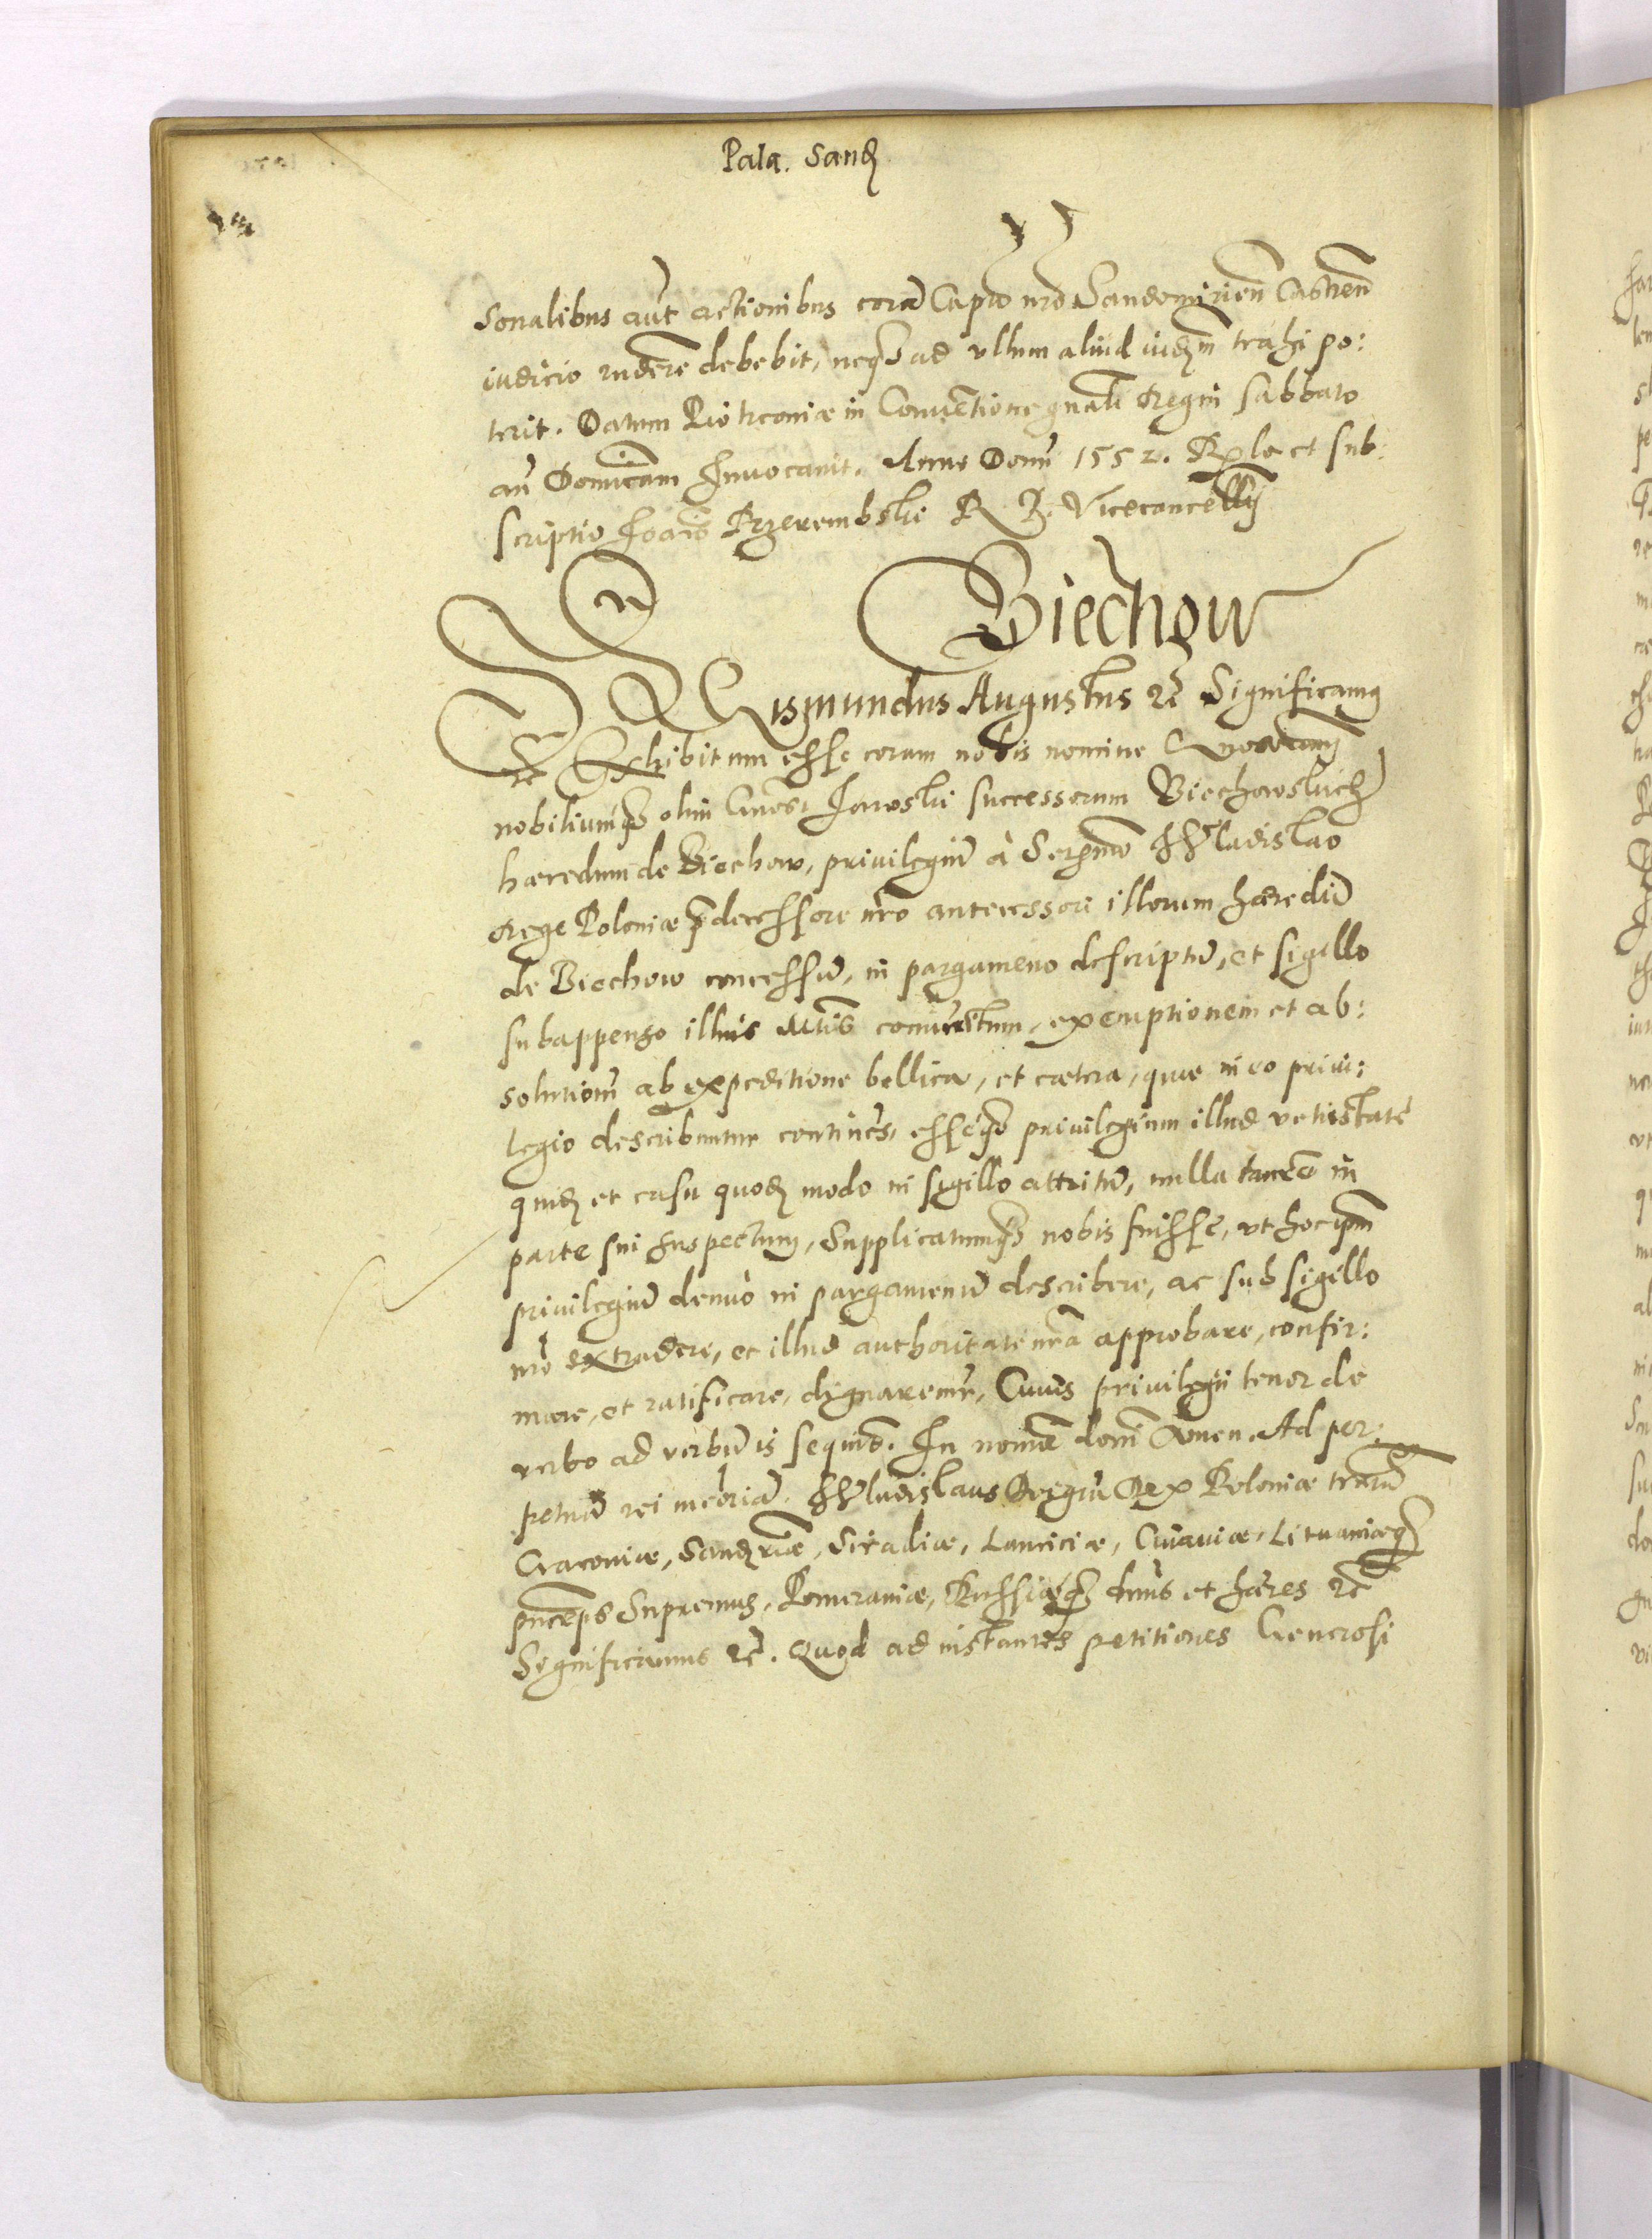 Pala. Sand
sonalibus aut actionibus corā Capto nro Sandomirien̄ Castren̄
iudicio rndere debebit, neq; ad vllum aliud iudm̄ trahi po:
terit. Datum Piotrconiæ in Conuētione gnāli Regni sabbato
an̄ Domīcam Inuocauit. Anno Domī 1552. Rela et sub:
scriptio Joān̄s Przerembski R. P. Vicecancellȳ
Biechow
Sigismundus Augustus ꝛc̄ Significamꝯ
Exhibitum esse coram nobis nomine
nobiliumq; olim Gnosi Jaroski successorum Biechowskich
hæredum de Biechow, priuilegiū à Serꝫmo Wladislao
Rege Poloniæ p̄decessore nr̄o antecessori illorum hæredū
de Biechow concessū, in pargameno descriptū, et sigillo
subappenso illius Mtīs com̄nitum, exemptionem et ab:
solutionē ab expeditione bellica, et cætera, quæ in eo priui:
legio describuntur continēs, esseq; priuilegium illud vetustate
quid et casu quod modo in sigillo attritū, nulla tamē in
parte sui suspectum, Supplicatumq; nobis fuisse, vt hoc ipm̄
priuilegiū denuò in pargamenū describere, ac sub sigillo
nrō extradere, et illud authoritate nrā approbare, confir:
mare, et ratificare, dignaremr̄, Cuius priuilegii tenor de
verbo ad verbū is sequit̄. In nomīe domī Amen. Ad per:
petuā rei meōriā. Wladislaus Dei grā Rex Poloniæ trarū
Cracouiæ, Sandriæ, Siradiæ, Lanciciæ, Cuiauiæ, Lituaniæq;
prīceps Supremus, Pomeraniæ, Russiæq; dnus et hæres ꝛc̄
Significamus ꝛc̄. Quod ad instantes petitiones Generosi